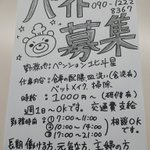 バイト
090-1222
8369
募集
勤務地:ペンション北斗星
仕事内容:食事の配膳・皿洗い(食洗機)
ベットメイク、掃除
時給:1000円~(研修有)
週1日~OKです。交通費支給
勤務時間 ①7:00~11:00
②17:00~21:00
③10:00~14:00
相談OK
です。
長期働ける方 元気な方 主婦の方